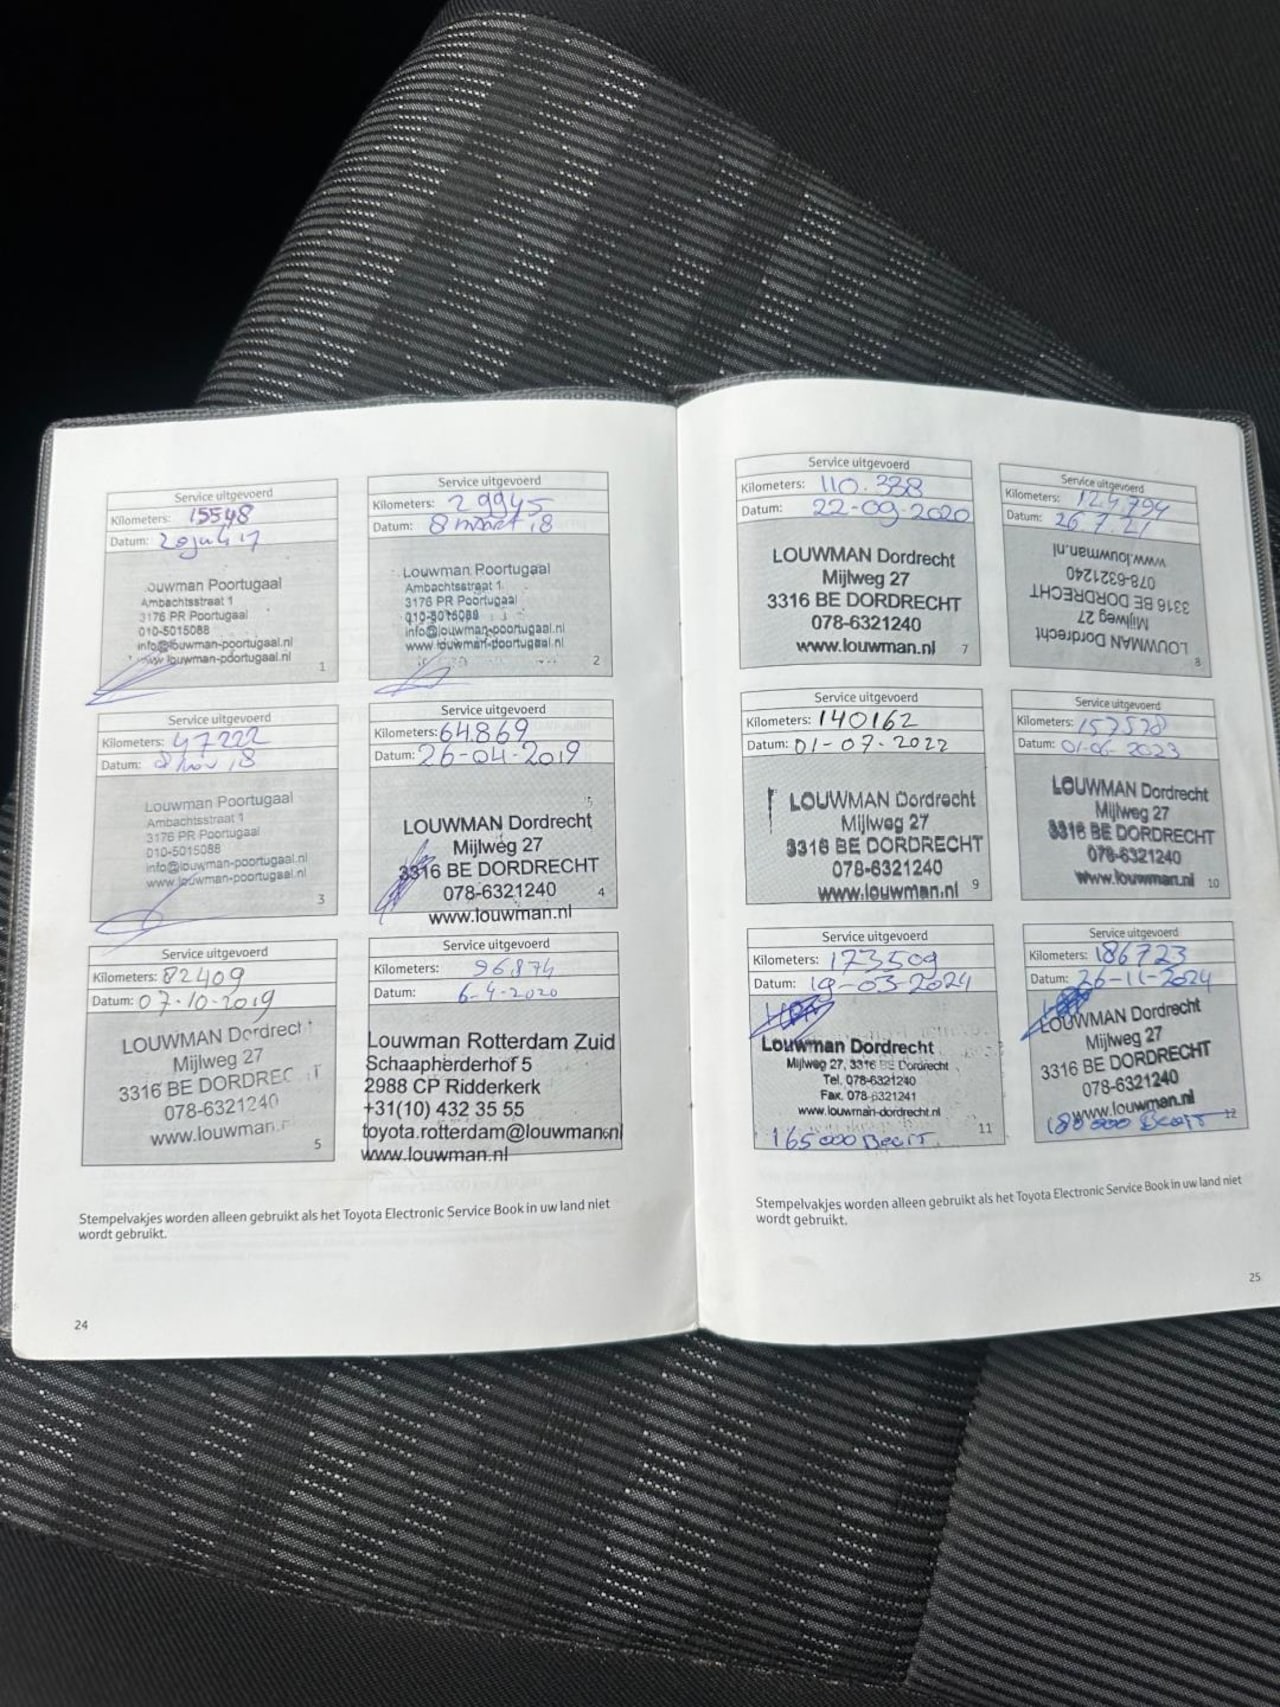 Service uitgevoerd
Kilometers: 15548
Datum: 20 juli 17
ouwman Poortugaal
Ambachtsstraat 1
3176 PR Poortugaal
010-5015088
info@louwman-poortugaal.nl
www.louwman-poortugaal.nl
1
Service uitgevoerd
Kilometers: 29945
Datum: 8 maart 18
Louwman Poortugaal
Ambachtsstraat 1
3176 PR Poortugaal
010-5015088
info@louwman-poortugaal.nl
www.louwman-poortugaal.nl
2
Service uitgevoerd
Kilometers: 47222
Datum: 8 nov 18
Louwman Poortugaal
Ambachtsstraat 1
3176 PR Poortugaal
010-5015088
info@louwman-poortugaal.nl
www.louwman-poortugaal.nl
3
Service uitgevoerd
Kilometers: 64.869
Datum: 26-04-2019
LOUWMAN Dordrecht
Mijlweg 27
3316 BE DORDRECHT
078-6321240
4
www.louwman.nl
Service uitgevoerd
Kilometers: 82409
Datum: 07-10-2019
LOUWMAN Dordrecht
Mijlweg 27
3316 BE DORDREC T
078-6321240
www.louwman.
5
Service uitgevoerd
Kilometers: 96874
Datum: 6-4-2020
Louwman Rotterdam Zuid
Schaapherderhof 5
2988 CP Ridderkerk
+31(10) 432 35 55
toyota.rotterdam@louwman.nl
www.louwman.nl
Stempelvakjes worden alleen gebruikt als het Toyota Electronic Service Book in uw land niet
wordt gebruikt.
24
Service uitgevoerd
Kilometers: 110.338
Datum: 22-09-2020
LOUWMAN Dordrecht
Mijlweg 27
3316 BE DORDRECHT
078-6321240
www.louwman.nl
7
Service uitgevoerd
Kilometers: 124.794
Datum: 26.7.21
LOUWMAN Dordrecht
Mijlweg 27
3316 BE DORDRECHT
078-6321240
www.louwman.nl
8
Service uitgevoerd
Kilometers: 140162
Datum: 01-07-2022
LOUWMAN Dordrecht
Mijlweg 27
3316 BE DORDRECHT
078-6321240
www.louwman.nl
9
Service uitgevoerd
Kilometers: 157578
Datum: 01-06-2023
LOUWMAN Dordrecht
Mijlweg 27
3316 BE DORDRECHT
078-6321240
www.louwman.nl
10
Service uitgevoerd
Kilometers: 173509
Datum: 19-03-2024
Louwman Dordrecht
Mijlweg 27, 3316 BE Dordrecht
Tel. 078-6321240
Fax. 078-6321241
www.louwman-dordrecht.nl
11
165000 Beurt
Service uitgevoerd
Kilometers: 186723
Datum: 26-11-2024
LOUWMAN Dordrecht
Mijlweg 27
3316 BE DORDRECHT
078-6321240
www.louwman.nl
12
180000 Beurt
Stempelvakjes worden alleen gebruikt als het Toyota Electronic Service Book in uw land niet
wordt gebruikt.
25